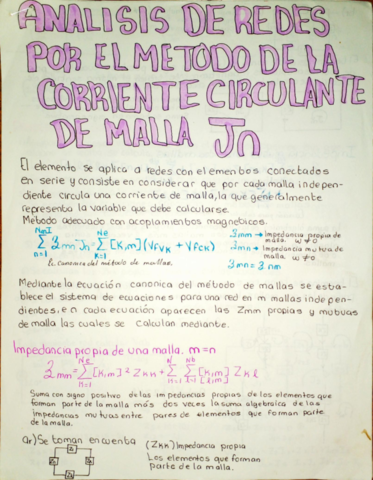 ANALISIS DE REDES
POR EL METODO DE LA
CORRIENTE CIRCULANTE
DE MALLA Jn
El elemento se aplica a redes con elementos conectados
en serie y consiste en considerar que por cada malla indepen-
diente circula una corriente de malla, la que generalmente
representa la variable que debe calcularse.
Metodo adecuado con acoplamientos magneticos.
∑ Zmn Jn = ∑ [K,m] (Vfvk + Vfck)
Zmm → Impedancia propia de malla. w ≠ 0
Zmn → Impedancia mutua de malla. w ≠ 0
Zmn = Znm
Ec. canonica del método de mallas.
Mediante la ecuación canonica del método de mallas se esta-
blece el sistema de ecuaciones para una red en m mallas indepen-
dientes, en cada ecuación aparecen las Zmm propias y mutuas
de malla las cuales se calculan mediante.
Impedancia propia de una malla, m=n
Zmn = ∑ [K,m]² Zkk + ∑ ∑ [K,m] [l,m] Zkl
Suma con signo positivo de las impedancias propias de los elementos que
forman parte de la malla más dos veces la suma algebraica de las
impedancias mutuas entre pares de elementos que forman parte
de la malla.
a) Se toman en cuenta
(Zkk) Impedancia propia
Los elementos que forman
parte de la malla.